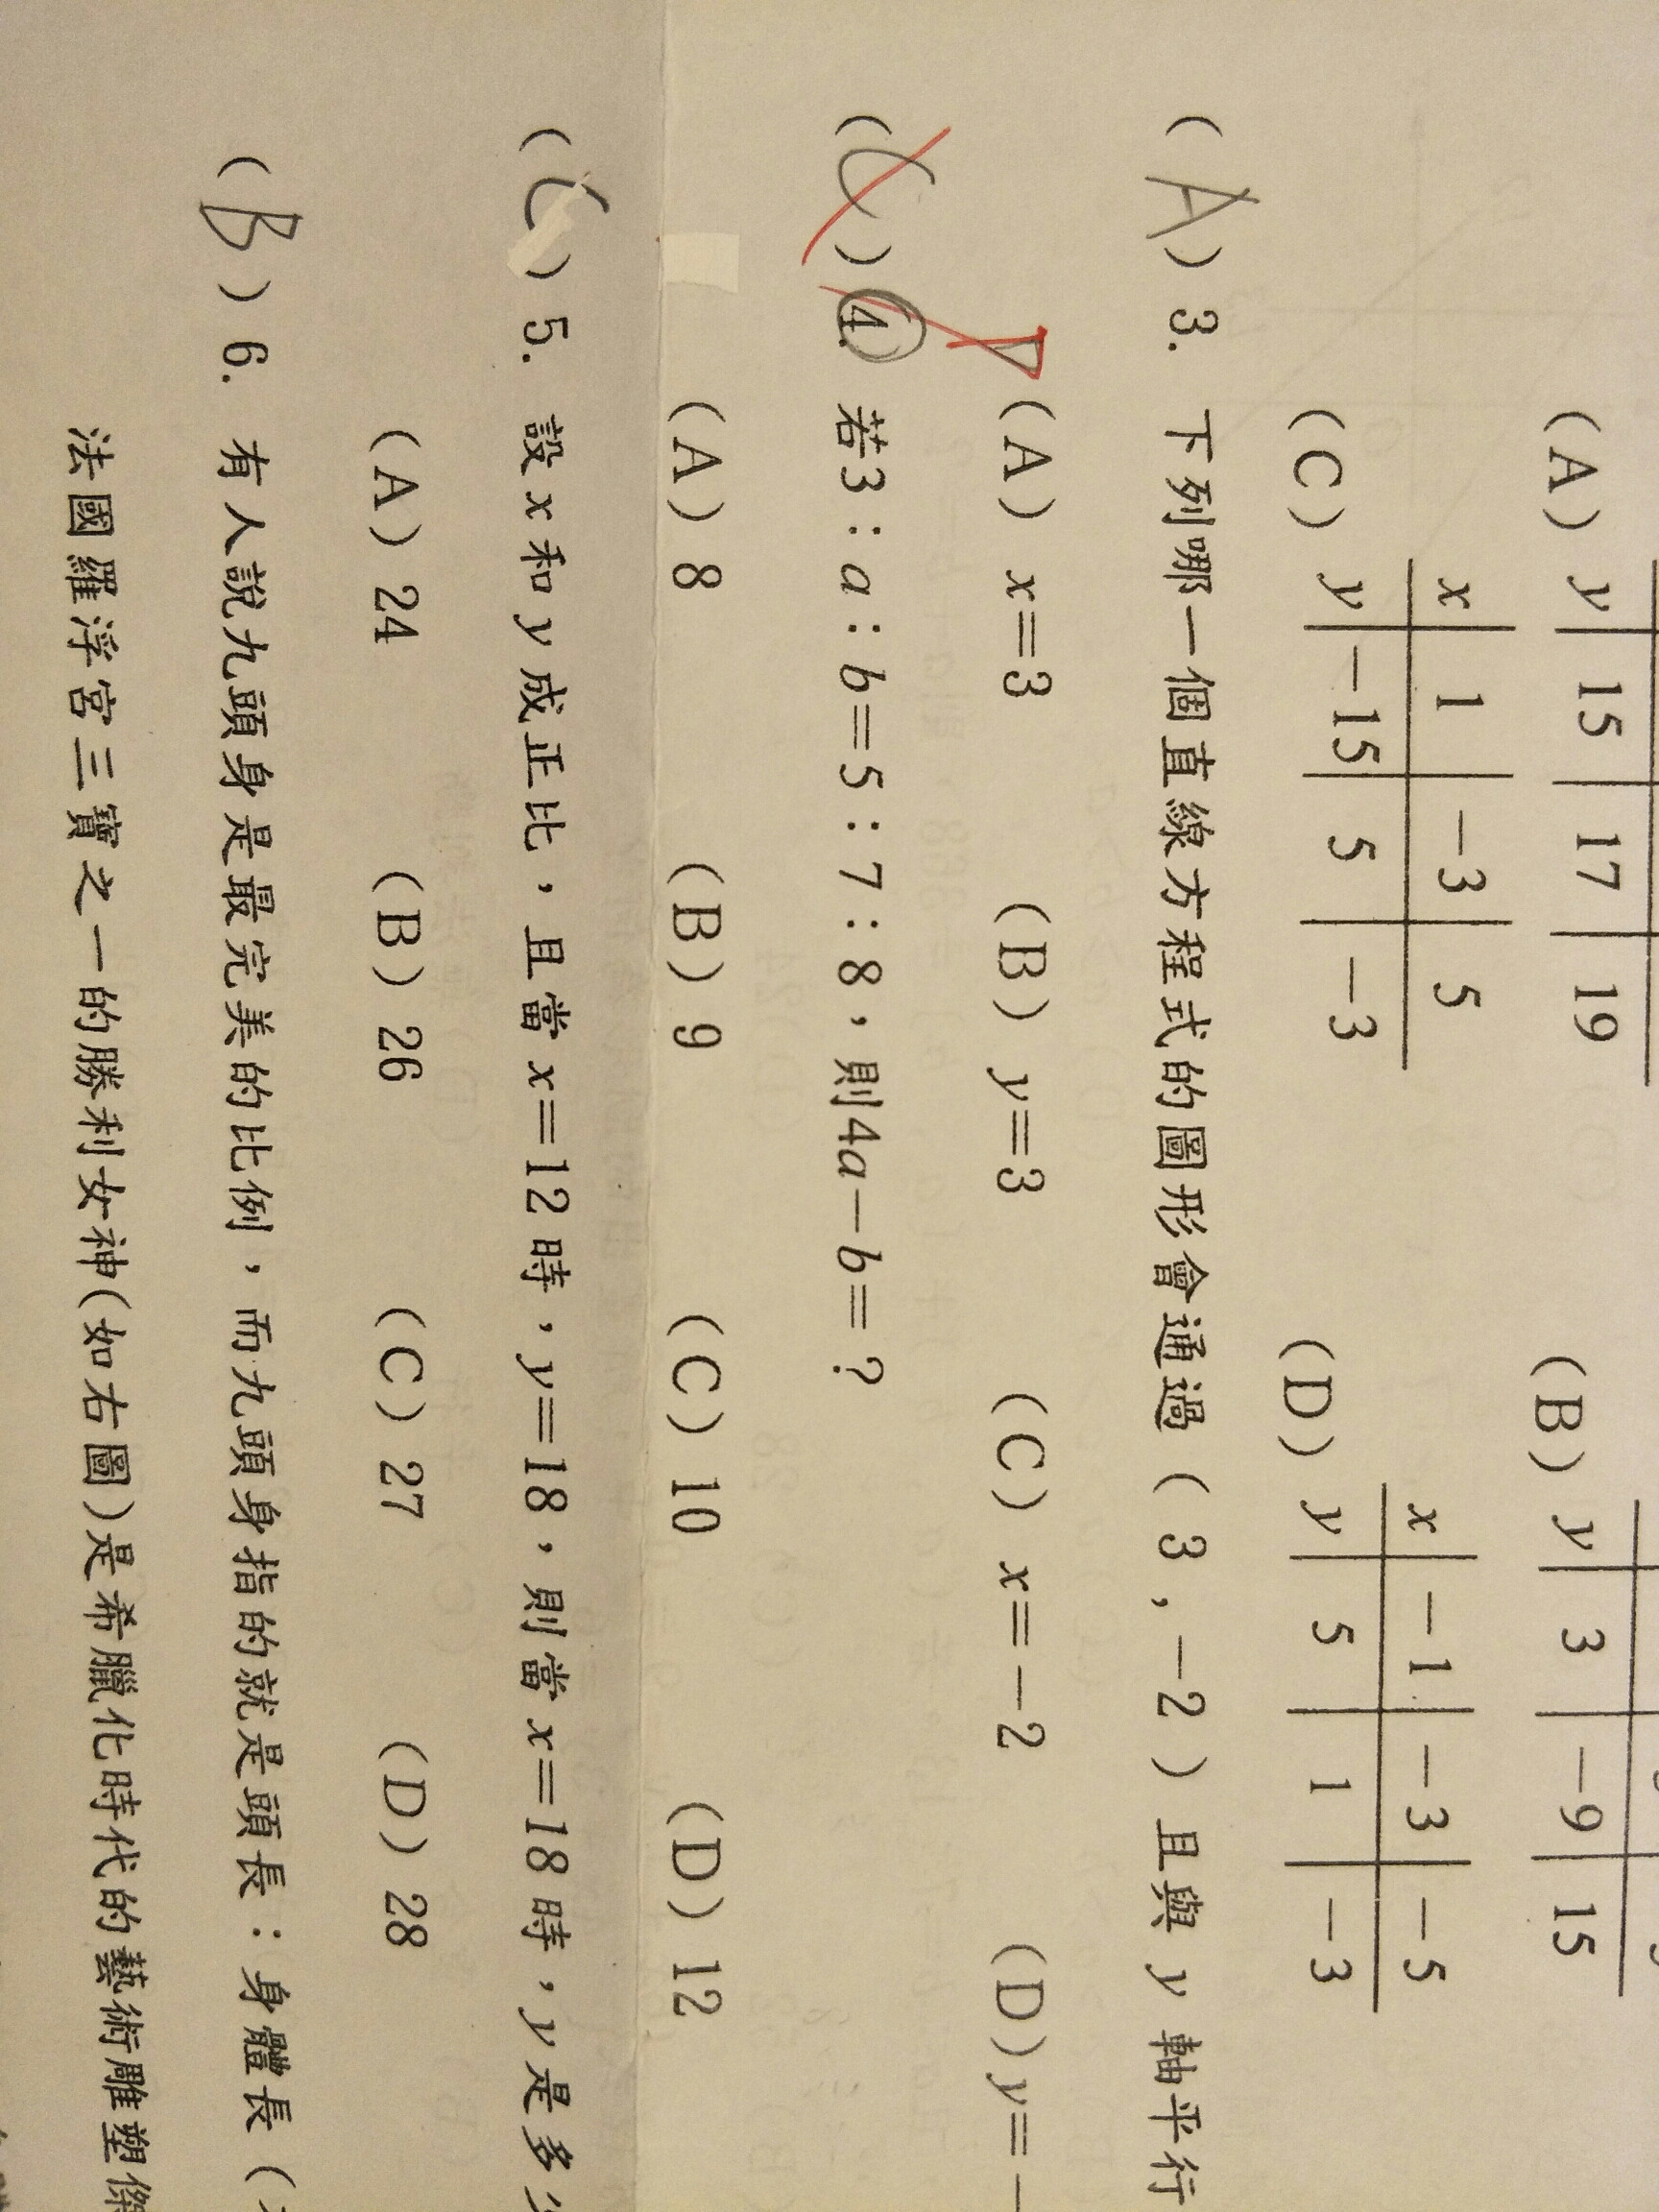 (A) y 15 17 19 (B) y 3 −9 15
(C) x 1 −3 5 (D) x −1 −3 −5
y −15 5 −3 y 5 1 −3
(A) 3. 下列哪一個直線方程式的圖形會通過(3,−2)且與 y 軸平行
(A) x=3 (B) y=3 (C) x=−2 (D) y=−
(C) 4. 若3:a:b=5:7:8,則4a−b=?
(A) 8 (B) 9 (C) 10 (D) 12
(C) 5. 設 x 和 y 成正比,且當 x=12 時,y=18,則當 x=18 時,y 是多
(A) 24 (B) 26 (C) 27 (D) 28
(B) 6. 有人說九頭身是最完美的比例,而九頭身指的就是頭長:身體長(
法國羅浮宮三寶之一的勝利女神(如右圖)是希臘化時代的藝術雕塑傑